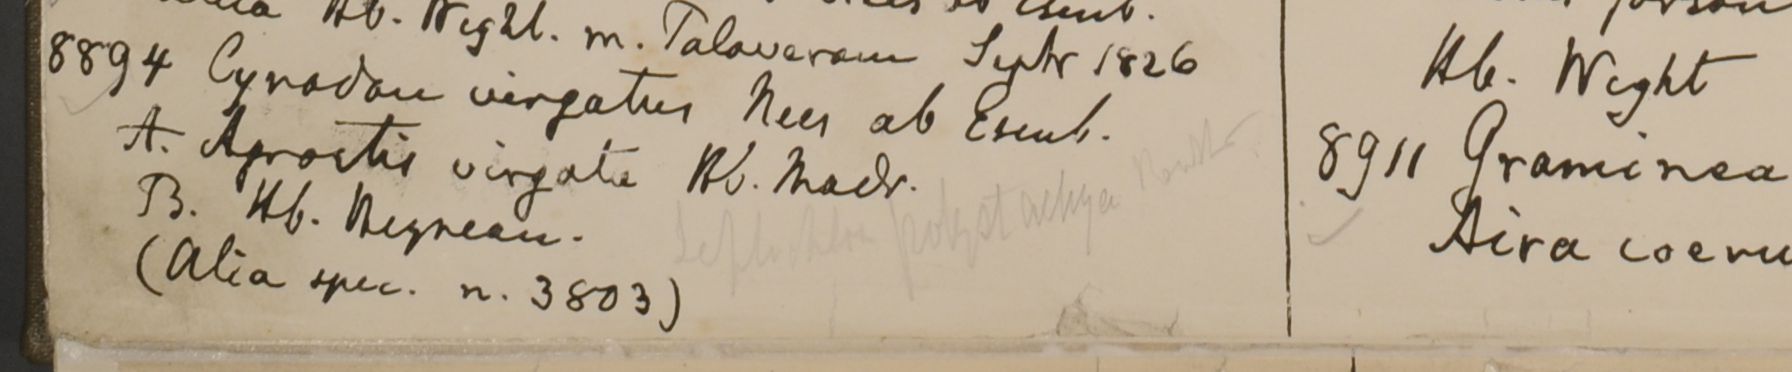 Hb. Wight. m. Talaveram Septr 1826
8894 Cynodon virgatus Nees ab Esenb.
A. Agrostis virgata Hb. Madr.
B. Hb. Heynean.
(Alia spec. n. 3803)
Leptochloa polystachya
Hb. Wight
8911 Graminea
Aira coeru